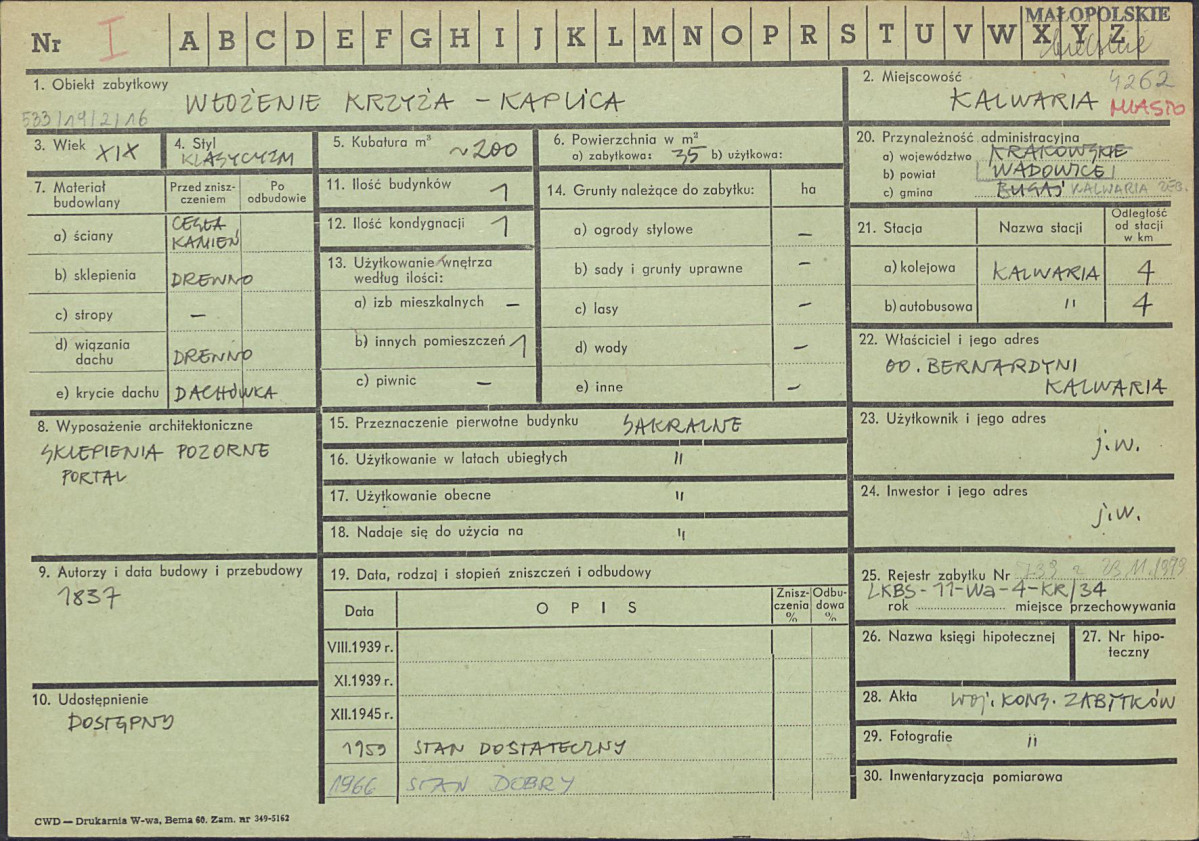 MAŁOPOLSKIE
Nr I A B C D E F G H I J K L M N O P R S T U V W X Y Z
1. Obiekt zabytkowy
WŁOŻENIE KRZYŻA – KAPLICA
533/19/2/16
2. Miejscowość
4262
KALWARIA MIASTO
3. Wiek XIX
4. Styl
KLASYCYZM
5. Kubatura m³ ~200
6. Powierzchnia w m²
a) zabytkowa: 35 b) użytkowa:
20. Przynależność administracyjna
a) województwo KRAKOWSKIE
b) powiat WADOWICE
c) gmina BUGAJ KALWARIA ZEB.
7. Materiał budowlany
Przed zniszczeniem
Po odbudowie
a) ściany CEGŁA
KAMIEŃ
b) sklepienia DREWNO
c) stropy –
d) wiązania dachu DREWNO
e) krycie dachu DACHÓWKA
11. Ilość budynków 1
12. Ilość kondygnacji 1
13. Użytkowanie wnętrza
według ilości:
a) izb mieszkalnych –
b) innych pomieszczeń 1
c) piwnic –
14. Grunty należące do zabytku: ha
a) ogrody stylowe –
b) sady i grunty uprawne –
c) lasy –
d) wody –
e) inne –
21. Stacja Nazwa stacji
Odległość
od stacji
w km
a) kolejowa KALWARIA 4
b) autobusowa " 4
22. Właściciel i jego adres
OO. BERNARDYNI
KALWARIA
8. Wyposażenie architektoniczne
SKLEPIENIA POZORNE
PORTAL
15. Przeznaczenie pierwotne budynku SAKRALNE
16. Użytkowanie w latach ubiegłych "
17. Użytkowanie obecne "
18. Nadaje się do użycia na "
23. Użytkownik i jego adres
j.w.
24. Inwestor i jego adres
j.w.
9. Autorzy i data budowy i przebudowy
1837
10. Udostępnienie
DOSTĘPNY
19. Data, rodzaj i stopień zniszczeń i odbudowy
Data OPIS
Zniszczenia %
Odbudowa %
VIII.1939 r.
XI.1939 r.
XII.1945 r.
1959 STAN DOSTATECZNY
1966 STAN DOBRY
25. Rejestr zabytku Nr
LKBS-11-Wa-4-KR/34
rok miejsce przechowywania
26. Nazwa księgi hipotecznej
27. Nr hipoteczny
28. Akta WOJ. KONS. ZABYTKÓW
29. Fotografie "
30. Inwentaryzacja pomiarowa
CWD — Drukarnia W-wa, Bema 60. Zam. nr 349-5162